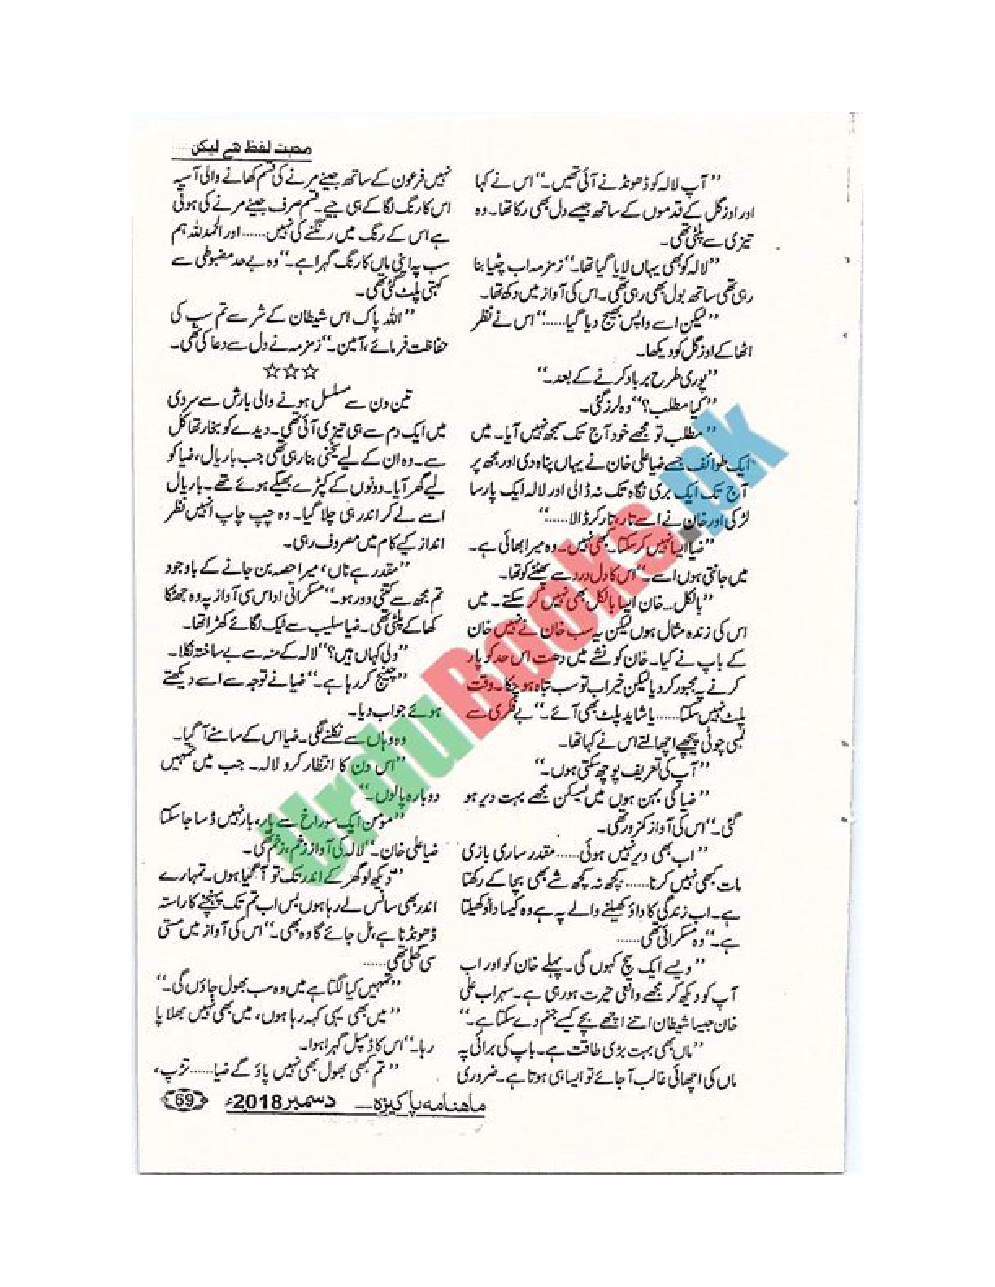 محبت لفظ ہے لیکن ......
’’آپ لالہ کو ڈھونڈنے آئی تھیں۔‘‘ اس نے کہا
اور اوزگل کے قدموں کے ساتھ جیسے دل بھی رکا تھا۔ وہ
تیزی سے پلٹی تھی۔
’’لالہ کو بھی یہاں لایا گیا تھا۔‘‘ زمزمہ اب چٹیا بنا
رہی تھی ساتھ بول بھی رہی تھی۔ اس کی آواز میں دکھ تھا۔
’’لیکن اسے واپس بھیج دیا گیا......‘‘ اس نے نظر
اٹھا کے اوزگل کو دیکھا۔
’’پوری طرح برباد کرنے کے بعد۔‘‘
’’کیا مطلب؟‘‘ وہ لرز گئی۔
’’مطلب تو مجھے خود آج تک سمجھ نہیں آیا۔ میں
ایک طوائف جسے ضیا علی خان نے یہاں پناہ دی اور مجھ پر
آج تک ایک بری نگاہ تک نہ ڈالی اور لالہ ایک پارسا
لڑکی اور خان نے اسے تار تار کر ڈالا......‘‘
’’ضیا ایسا نہیں کر سکتا۔ کبھی نہیں۔ وہ میرا بھائی ہے۔
میں جانتی ہوں اسے۔‘‘ اس کا دل درد سے پھٹنے کو تھا۔
’’بالکل۔ خان ایسا بالکل بھی نہیں کر سکتے۔ میں
اس کی زندہ مثال ہوں لیکن یہ سب خان نے نہیں خان
کے باپ نے کیا۔ خان کو نشے میں دھت اس حد کو پار
کرنے پہ مجبور کر دیا لیکن خیر اب تو سب تباہ ہو چکا۔ وقت
پلٹ نہیں سکتا...... یا شاید پلٹ بھی آئے۔‘‘ بے فکری سے
لمبی چوٹی پیچھے اچھالتے اس نے کہا تھا۔
’’آپ کی تعریف پوچھ سکتی ہوں۔‘‘
’’ضیا کی بہن ہوں میں لیکن مجھے بہت دیر ہو
گئی۔‘‘ اس کی آواز کمزور تھی۔
’’اب بھی دیر نہیں ہوئی...... مقدر ساری بازی
مات کبھی نہیں کرتا...... کچھ نہ کچھ شے بھی بچا کے رکھتا
ہے۔ اب زندگی کا داؤ کھیلنے والے پہ ہے وہ کیسا داؤ کھیلتا
ہے۔‘‘ وہ مسکرائی تھی......
’’ویسے ایک سچ کہوں گی۔ پہلے خان کو اور اب
آپ کو دیکھ کر مجھے واقعی حیرت ہو رہی ہے۔ سہراب علی
خان جیسا شیطان اتنے اچھے بچے کیسے جنم دے سکتا ہے۔‘‘
’’ماں بھی بہت بڑی طاقت ہے۔ باپ کی برائی پہ
ماں کی اچھائی غالب آ جائے تو ایسا ہی ہوتا ہے۔ ضروری
نہیں فرعون کے ساتھ جینے مرنے کی قسم کھانے والی آسیہ
اس کا رنگ لگا کے ہی جیے۔ قسم صرف جینے مرنے کی ہوتی
ہے اس کے رنگ میں رنگنے کی نہیں...... اور الحمدللہ ہم
سب پہ اپنی ماں کا رنگ گہرا ہے۔‘‘ وہ بے حد مضبوطی سے
کہتی پلٹ گئی تھی۔
’’اللہ پاک اس شیطان کے شر سے تم سب کی
حفاظت فرمائے، آمین۔‘‘ زمزمہ نے دل سے دعا کی تھی۔
☆☆☆
تین دن سے مسلسل ہونے والی بارش سے سردی
میں ایک دم سے ہی تیزی آئی تھی۔ دیدے کو بخار تھا کل
سے۔ وہ ان کے لیے یخنی بنا رہی تھی جب باریال، ضیا کو
لیے گھر آیا۔ دونوں کے کپڑے بھیگے ہوئے تھے۔ باریال
اسے لے کر اندر ہی چلا گیا۔ وہ چپ چاپ انہیں نظر
انداز کیے کام میں مصروف رہی۔
’’مقدر ہے ناں، میرا حصہ بن جانے کے باوجود
تم مجھ سے کتنی دور ہو۔‘‘ مسکراتی اداس سی آواز پہ وہ جھٹکا
کھا کے پلٹی تھی۔ ضیا سلیب سے ٹیک لگائے کھڑا تھا۔
’’ولی کہاں ہیں؟‘‘ لالہ کے منہ سے بے ساختہ نکلا۔
’’چینج کر رہا ہے۔‘‘ ضیا نے توجہ سے اسے دیکھتے
ہوئے جواب دیا۔
وہ وہاں سے نکلنے لگی۔ ضیا اس کے سامنے آ گیا۔
’’اس دن کا انتظار کرو لالہ۔ جب میں تمہیں
دوبارہ پا لوں۔‘‘
’’مومن ایک سوراخ سے بار، بار نہیں ڈسا جا سکتا
ضیا علی خان۔‘‘ لالہ کی آواز زخم، زخم تھی۔
’’دیکھ لو گھر کے اندر تک تو آ گیا ہوں۔ تمہارے
اندر بھی سانس لے رہا ہوں بس اب تم تک پہنچنے کا راستہ
ڈھونڈنا ہے، مل جائے گا وہ بھی۔‘‘ اس کی آواز میں مستی
سی گھلی تھی......
’’تمہیں کیا لگتا ہے میں وہ سب بھول جاؤں گی۔‘‘
’’میں بھی یہی کہہ رہا ہوں، میں بھی نہیں بھلا پا
رہا۔‘‘ اس کا ڈمپل گہرا ہوا۔
’’تم کبھی بھول بھی نہیں پاؤ گے ضیا...... تڑپ،
ماہنامہ پاکیزہ ــــ دسمبر 2018ء
69
UrduBooks.pk